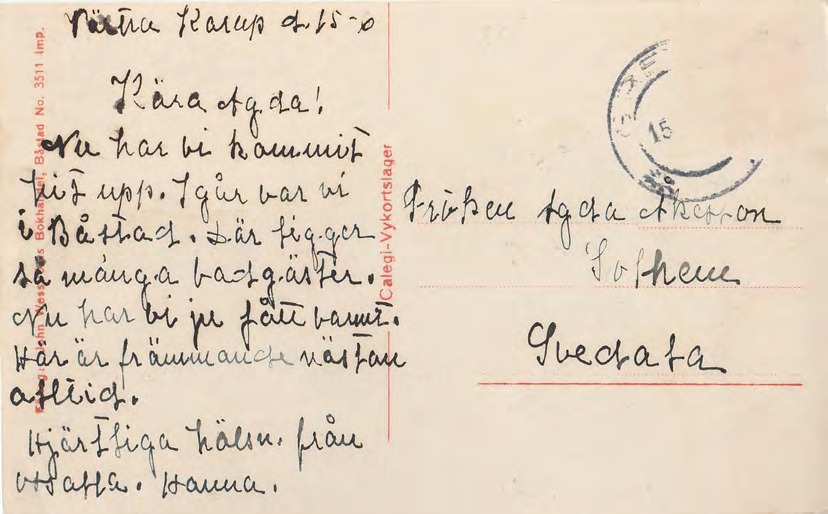 Västra Karup d. 15-
Kära Agda!
Nu har vi kommit
hit upp. Igår var vi
i Båstad. Där ligger
så många badgäster.
Nu har vi ju fått varmt.
Här är främmande nästan
alltid.
Hjärtliga hälsn. från
oss alla. Hanna.
Bokhandel, Båstad No. 3511 Imp.
Calegi-Vykortslager
15
Fröken Agda Åkesson
Solhem
Svedala